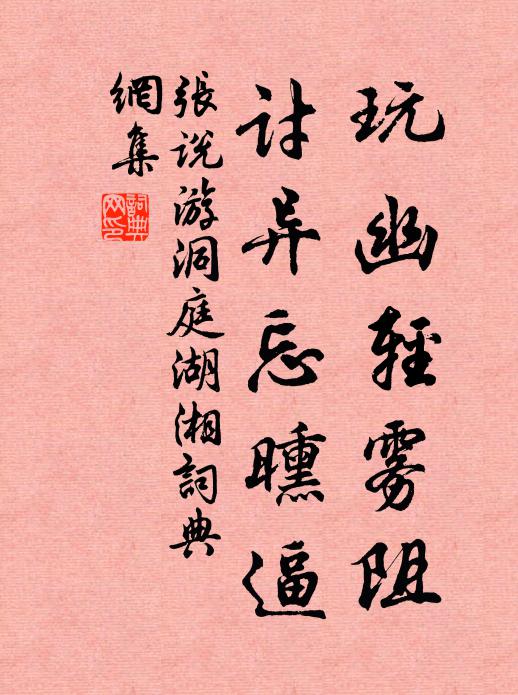 玩幽輕雾阻
討异忘曛逼
張说游洞庭湖湘詞典
網集
詞典网印